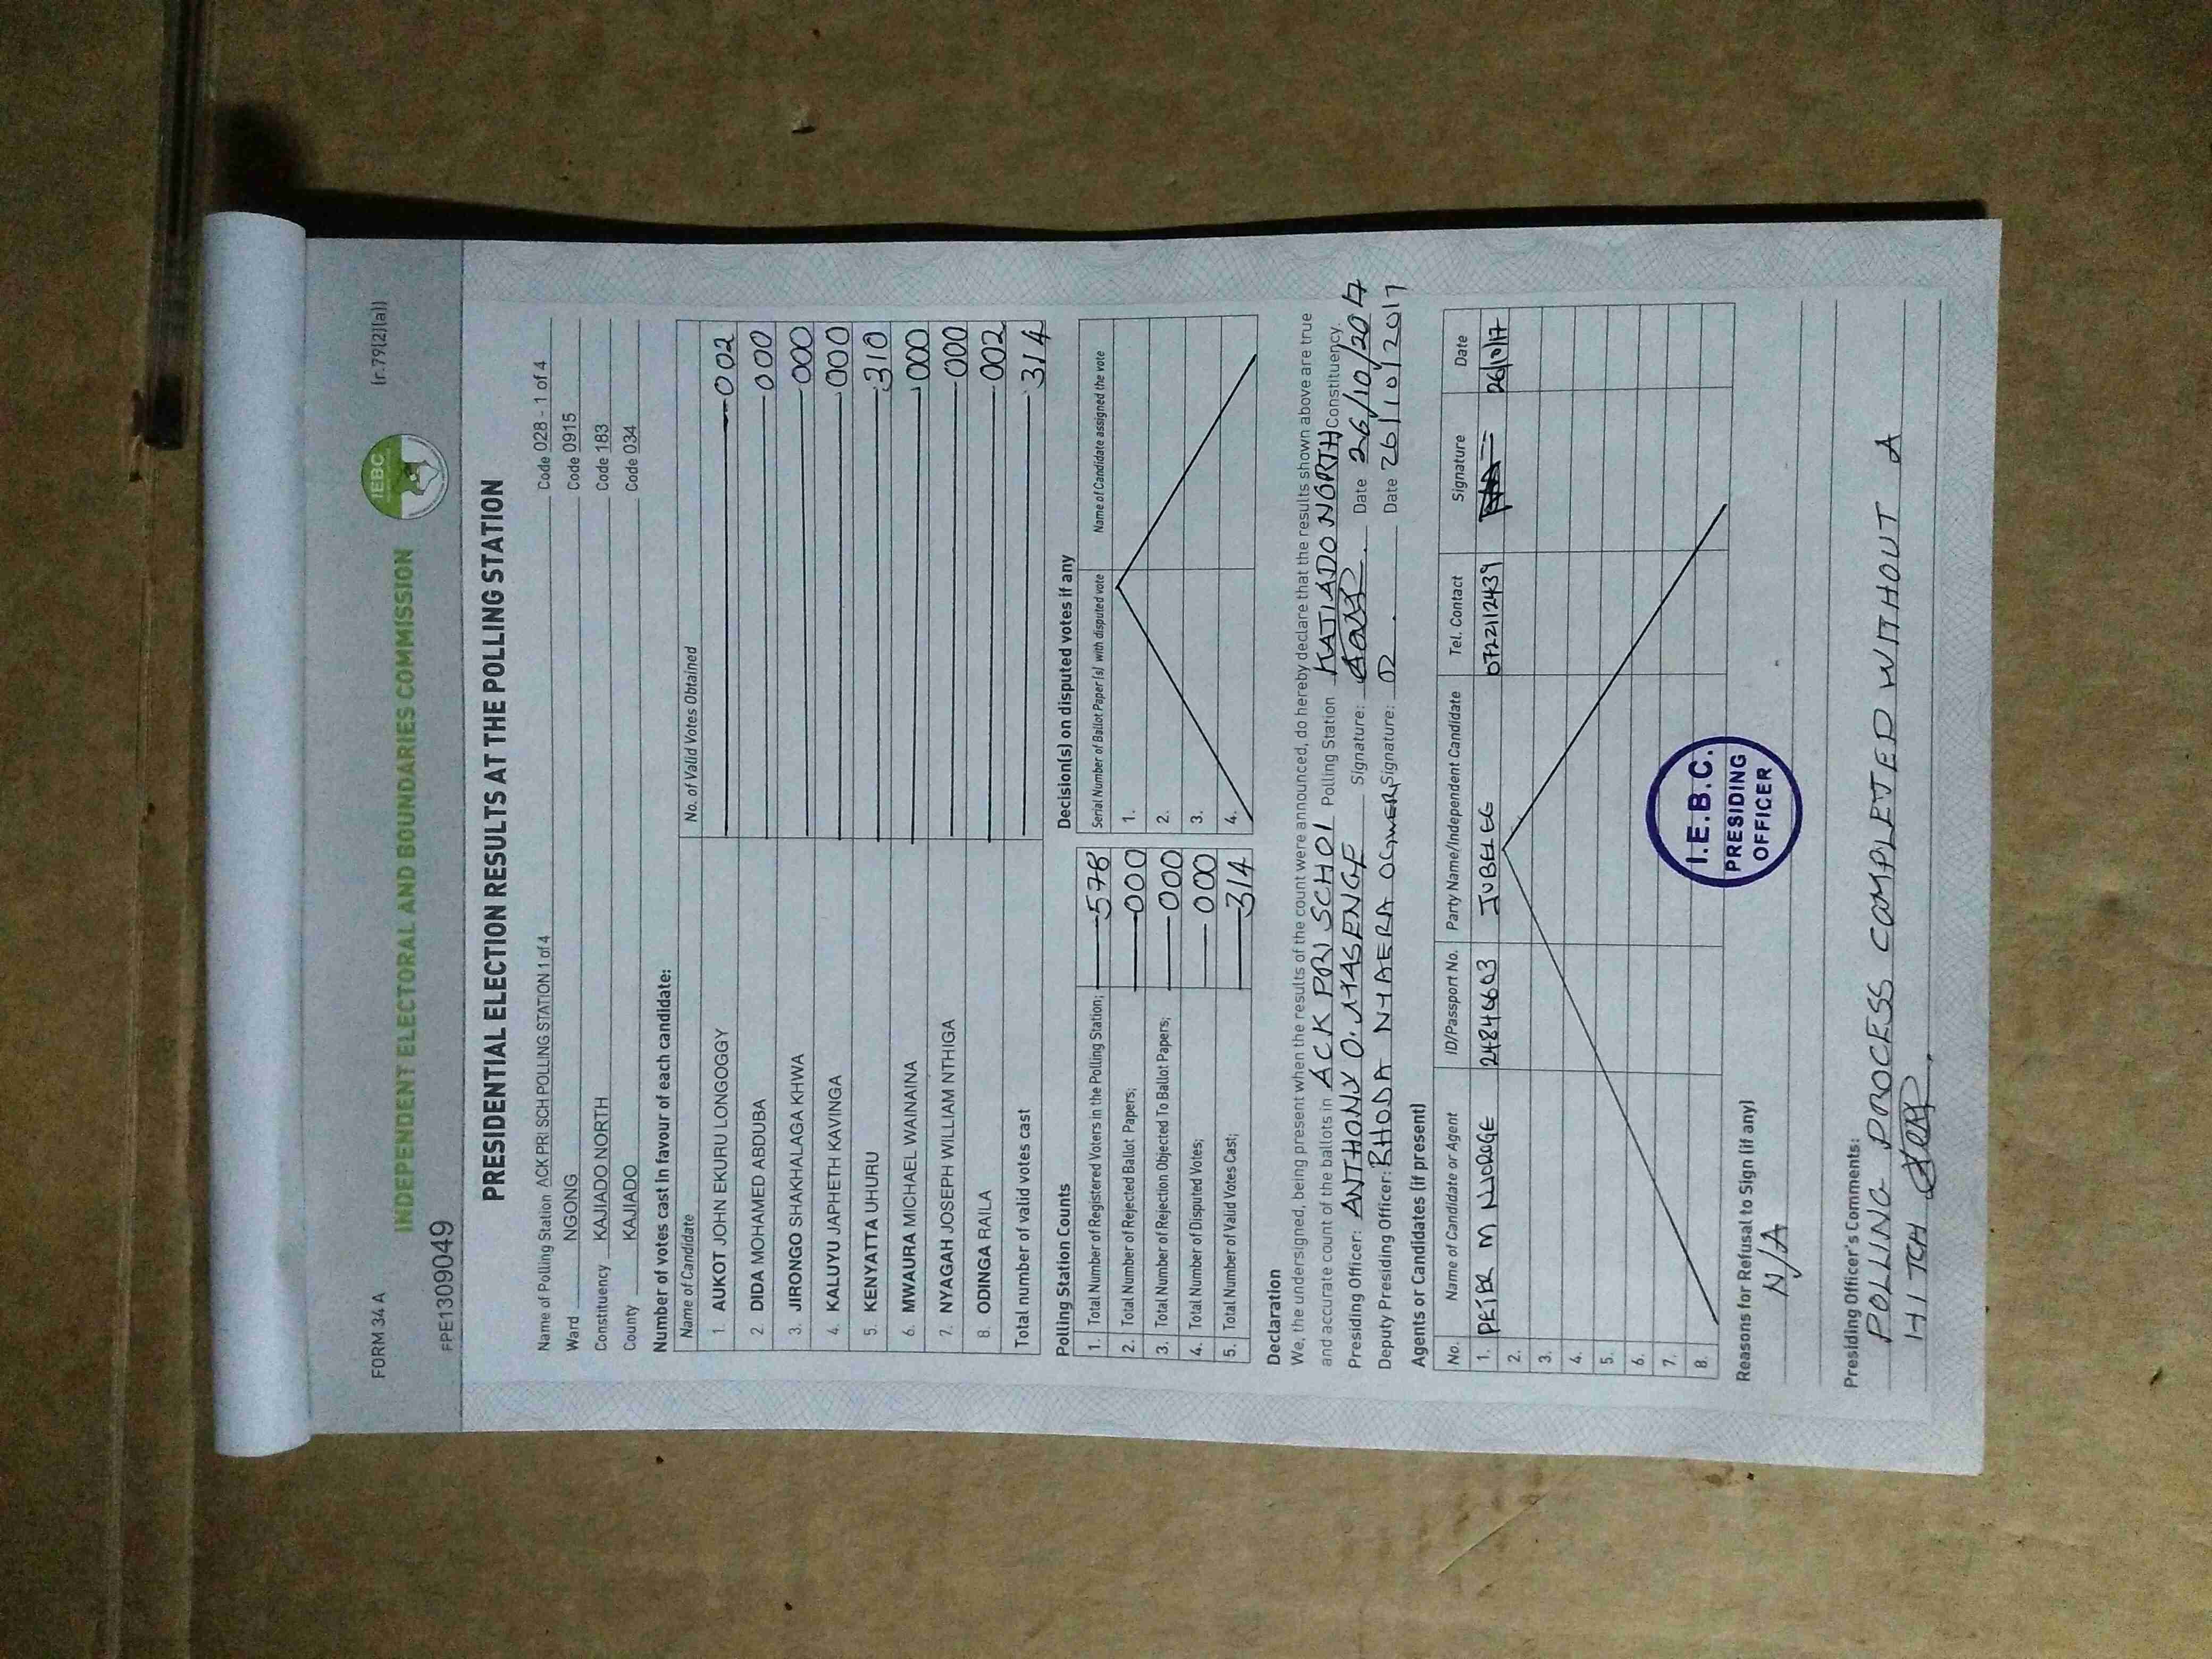 FORM 34 A
(r.79(2)(a))
INDEPENDENT ELECTORAL AND BOUNDARIES COMMISSION
IEBC
FPE1309049
PRESIDENTIAL ELECTION RESULTS AT THE POLLING STATION
Name of Polling Station ACK PRI SCH POLLING STATION 1 of 4 Code 028 - 1 of 4
Ward NGONG Code 0915
Constituency KAJIADO NORTH Code 183
County KAJIADO Code 034
Number of votes cast in favour of each candidate:
Name of Candidate No. of Valid Votes Obtained
1. AUKOT JOHN EKURU LONGOGGY 002
2 DIDA MOHAMED ABDUBA 000
3. JIRONGO SHAKHALAGA KHWA 000
4. KALUYU JAPHETH KAVINGA 000
5. KENYATTA UHURU 310
6. MWAURA MICHAEL WAINAINA 000
7. NYAGAH JOSEPH WILLIAM NTHIGA 000
8. ODINGA RAILA 002
Total number of valid votes cast 314
Polling Station Counts
1. Total Number of Registered Voters in the Polling Station; 578
2. Total Number of Rejected Ballot Papers; 000
3. Total Number of Rejection Objected To Ballot Papers; 000
4. Total Number of Disputed Votes; 000
5. Total Number of Valid Votes Cast; 314
Decision(s) on disputed votes if any
Serial Number of Ballot Paper (s) with disputed vote Name of Candidate assigned the vote
1.
2.
3.
4.
Declaration
We, the undersigned, being present when the results of the count were announced, do hereby declare that the results shown above are true
and accurate count of the ballots in ACK PRI SCHOl Polling Station KAJIADO NORTH Constituency.
Presiding Officer: ANTHONY O. Signature: Date 26/10/2017
Deputy Presiding Officer: RHODA Signature: Date 26/10/2017
Agents or Candidates (if present)
No. Name of Candidate or Agent ID/Passport No. Party Name/Independent Candidate Tel. Contact Signature Date
1. PETER M NJOROGE 24846603 JUBELEE 0722112439 26/10/17
2.
3.
4.
5.
6.
7.
8.
I.E.B.C.
PRESIDING
OFFICER
Reasons for Refusal to Sign (if any)
N/A
Presiding Officer's Comments:
POLLING PROCESS COMPLETED WITHOUT A
HITCH